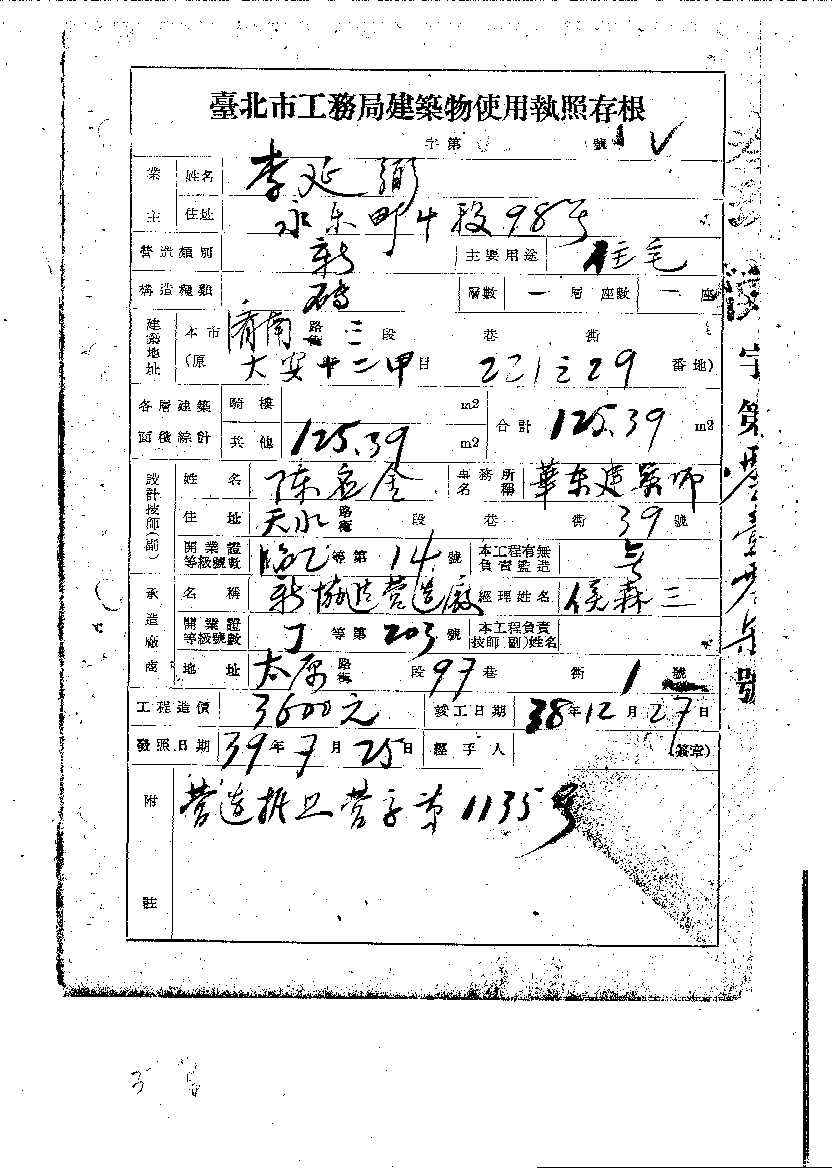 臺北市工務局建築物使用執照存根
字第 號
業主 姓名 李延弼
住址 永乐町4段98号
營造類別 新 主要用途 住宅
構造種類 磚 層數 一層 座數 一座
建築地址 本市 濟南路街三段 巷 衖
(原 大安十二甲日 221之29 番地)
各層建築面積綜計 騎樓 m2 合計 125.39 m2
其他 125.39 m2
設計技師(副) 姓名 陈 金 事務所名稱 華东建築師
住址 天水路街 段 巷 衖 39 號
開業證等級號數 臨乙等第 14 號 本工程有無負責監造 無
承造廠商 名稱 新協造营造廠 經理姓名 侯森三
開業證等級號數 丁等第 203 號 本工程負責技師(副)姓名
地址 太原路街 段 97 巷 衖 1 號
工程造價 3600元 竣工日期 38年12月27日
發照日期 39年7月25日 經手人 (簽章)
附註 营造执照营字第1135号
字第
號